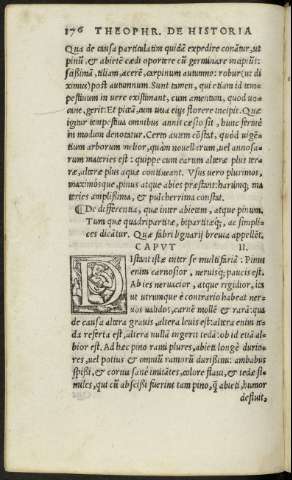 176 THEOPHR. DE HISTORIA
Qua de causa particulatim quidā expedire conātur, ut
pinū, & abietē cædi oportere cū germinare maxime
tiliam, acerē, carpinum autumno: robur (ut di
ximus) post autumnum. Sunt tamen, qui etiam id tem
pestiuum in uere existimant, cum amentum, quod uo
cant, gerit: Et pitȳ, cum uua eius florere incipit. Quæ
igitur tempestiua omnibus annis cæsio sit, hunc fermè
in modum denotatur. Certo autem cōstat, quòd uigen
tium arborum melior, quàm nouellarum, uel annosa-
rum materies est: quippe cum earum alteræ plus ter
reæ, alteræ plus aquæ contineant. Vsus uero plurimos,
maximosque, pinus atque abies præstant: harumq; ma
teries amplissima, & pulcherrima constat.
¶ De differentia, quæ inter abietem, atque pinum.
Tum quæ quadripartitæ, bipartitæq;, ac simplis
ces dicātur. Quæ fabri lignarij breuia appellēt.
CAPVT II.
Distant istæ inter se multifariā: Pinus
enim carnosior, neruisq; paucis est.
Abies neruacior, atque rigidior, ita
ut utrumque è contrario habeat ner-
uos ualidos, carnē mollē & rarā: qua
de causa altera grauis, altera leuis est: altera enim tæ
da referta est, altera nullā ingerit tedā: ob id etiā al-
bior est. Ad hæc pino rami plures, abieti longè durio-
res, uel potius & omniū ramorū durissimi: ambabus
spissi, & cornu sanè imitātes, colore flauo, & tedæ si-
miles, qui cū abscissi fuerint tam pino, q̄ abieti, humor
defluit,